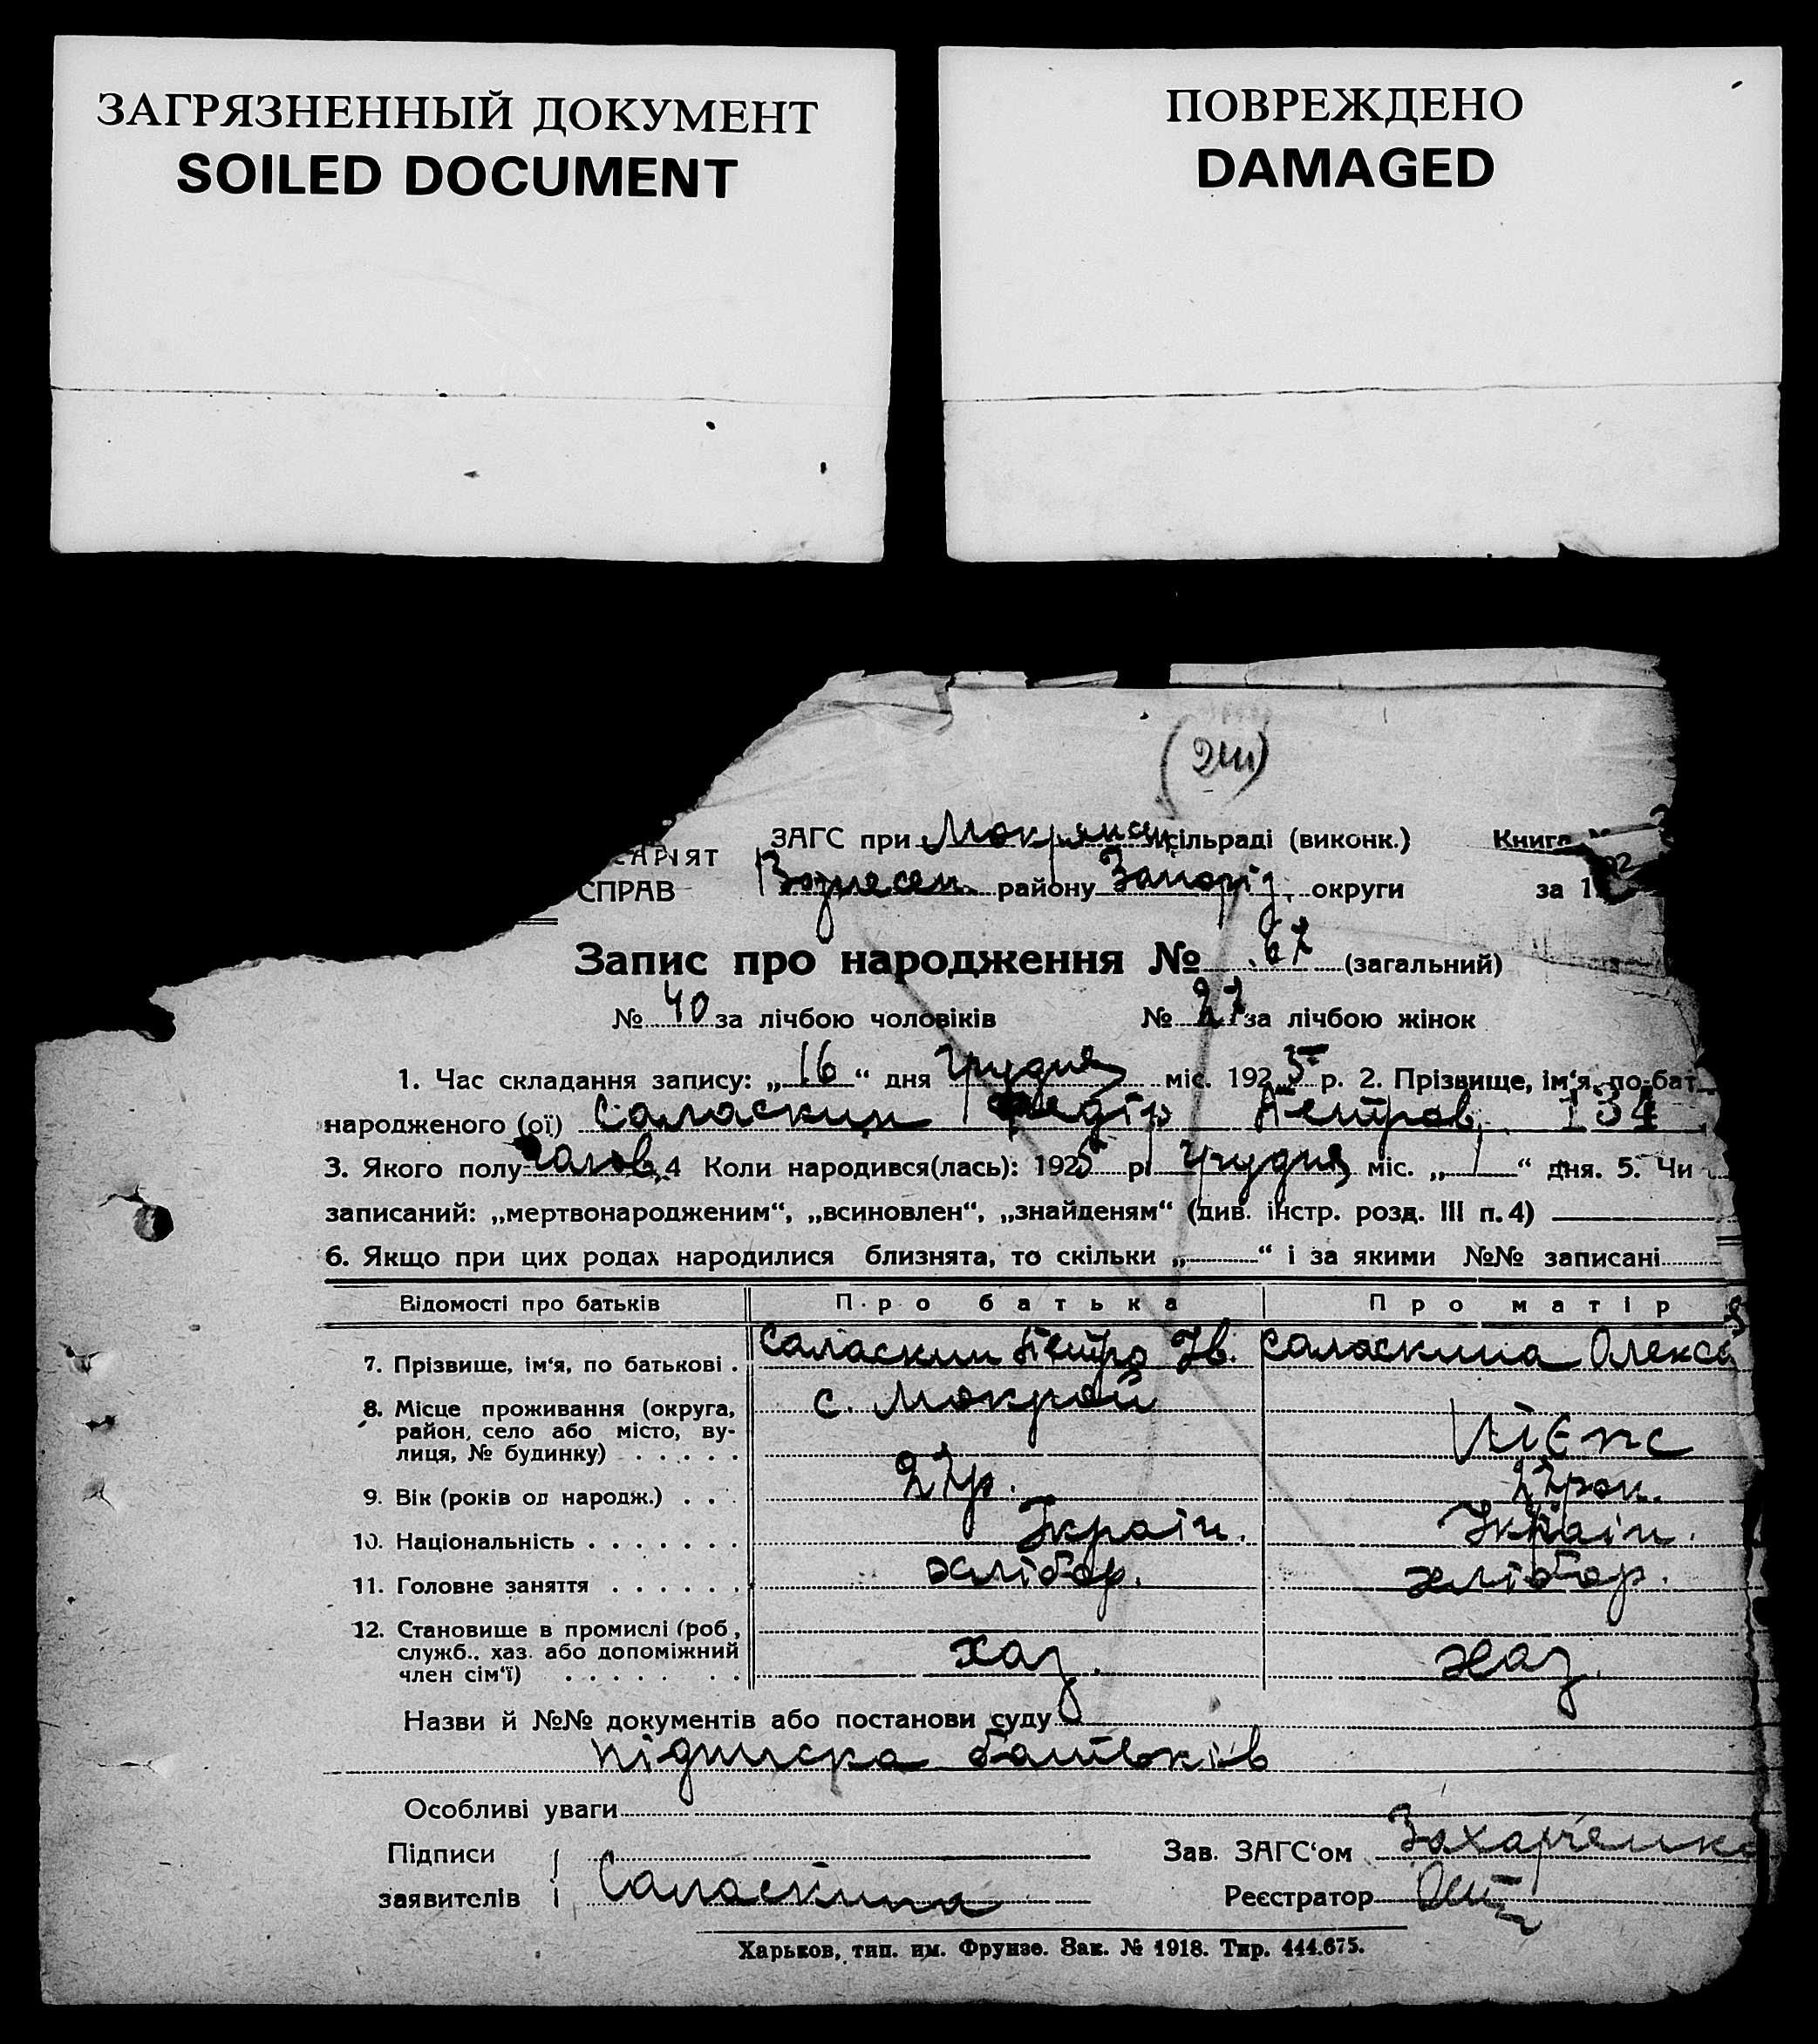 ЗАГРЯЗНЕННЫЙ ДОКУМЕНТ
SOILED DOCUMENT
ПОВРЕЖДЕНО
DAMAGED
САРІЯТ
СПРАВ
ЗАГС при Мокрянск сільраді (виконк.) Книга
Вознесен. району Запоріз. округи за 1
Запис про народження № 67 (загальний)
№ 40 за лічбою чоловіків № 27 за лічбою жінок
1. Час складання запису: „16“ дня Грудня міс. 1925 р. 2. Прізвище, ім‘я, по-бат
народженого (ої) Саласкин Федір Петров. 134
3. Якого полу чолов. 4 Коли народився(лась): 1925 р. Грудня міс. „1“ дня. 5. Чи
записаний: „мертвонародженим“, „всиновлен“, „знайденям“ (див. інстр. розд. III п. 4)
6. Якщо при цих родах народилися близнята, то скільки „ “ і за якими №№ записані
Відомості про батьків Про батька Про матір
7. Прізвище, ім‘я, по батькові . Саласкин Петро Ів. Саласкина Олекса
8. Місце проживання (округа, с. Мокрой
район, село або місто, ву-
лиця, № будинку) . . . . .
9. Вік (років од народж.) . . . 27р. 27рок.
10. Національність . . . . . . . Україн. Україн.
11. Головне заняття . . . . . . хлібор. хлібор.
12. Становище в промислі (роб,
служб., хаз. або допоміжний хаз. хаз.
член сім‘ї) . . . . . . .
Назви й №№ документів або постанови суду
підписка батьків
Особливі уваги
Підписи Зав. ЗАГС‘ом Захарченко
заявителів Саласкина Реєстратор
Харьков, тип. им. Фрунзе. Зак. № 1918. Тир. 444.675.